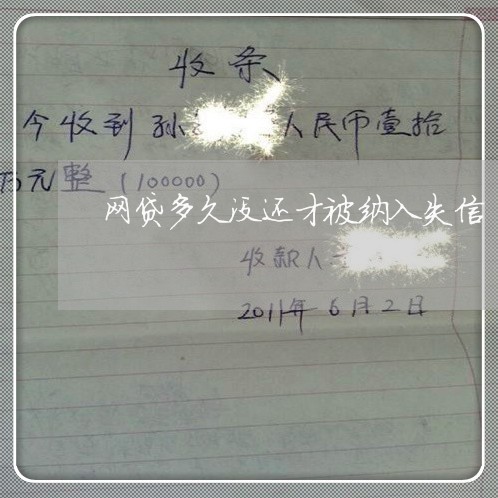 收条
今收到孙 人民币壹拾
万元整(100000)
网贷多久没还才被纳入失信
收款人
2011年6月2日